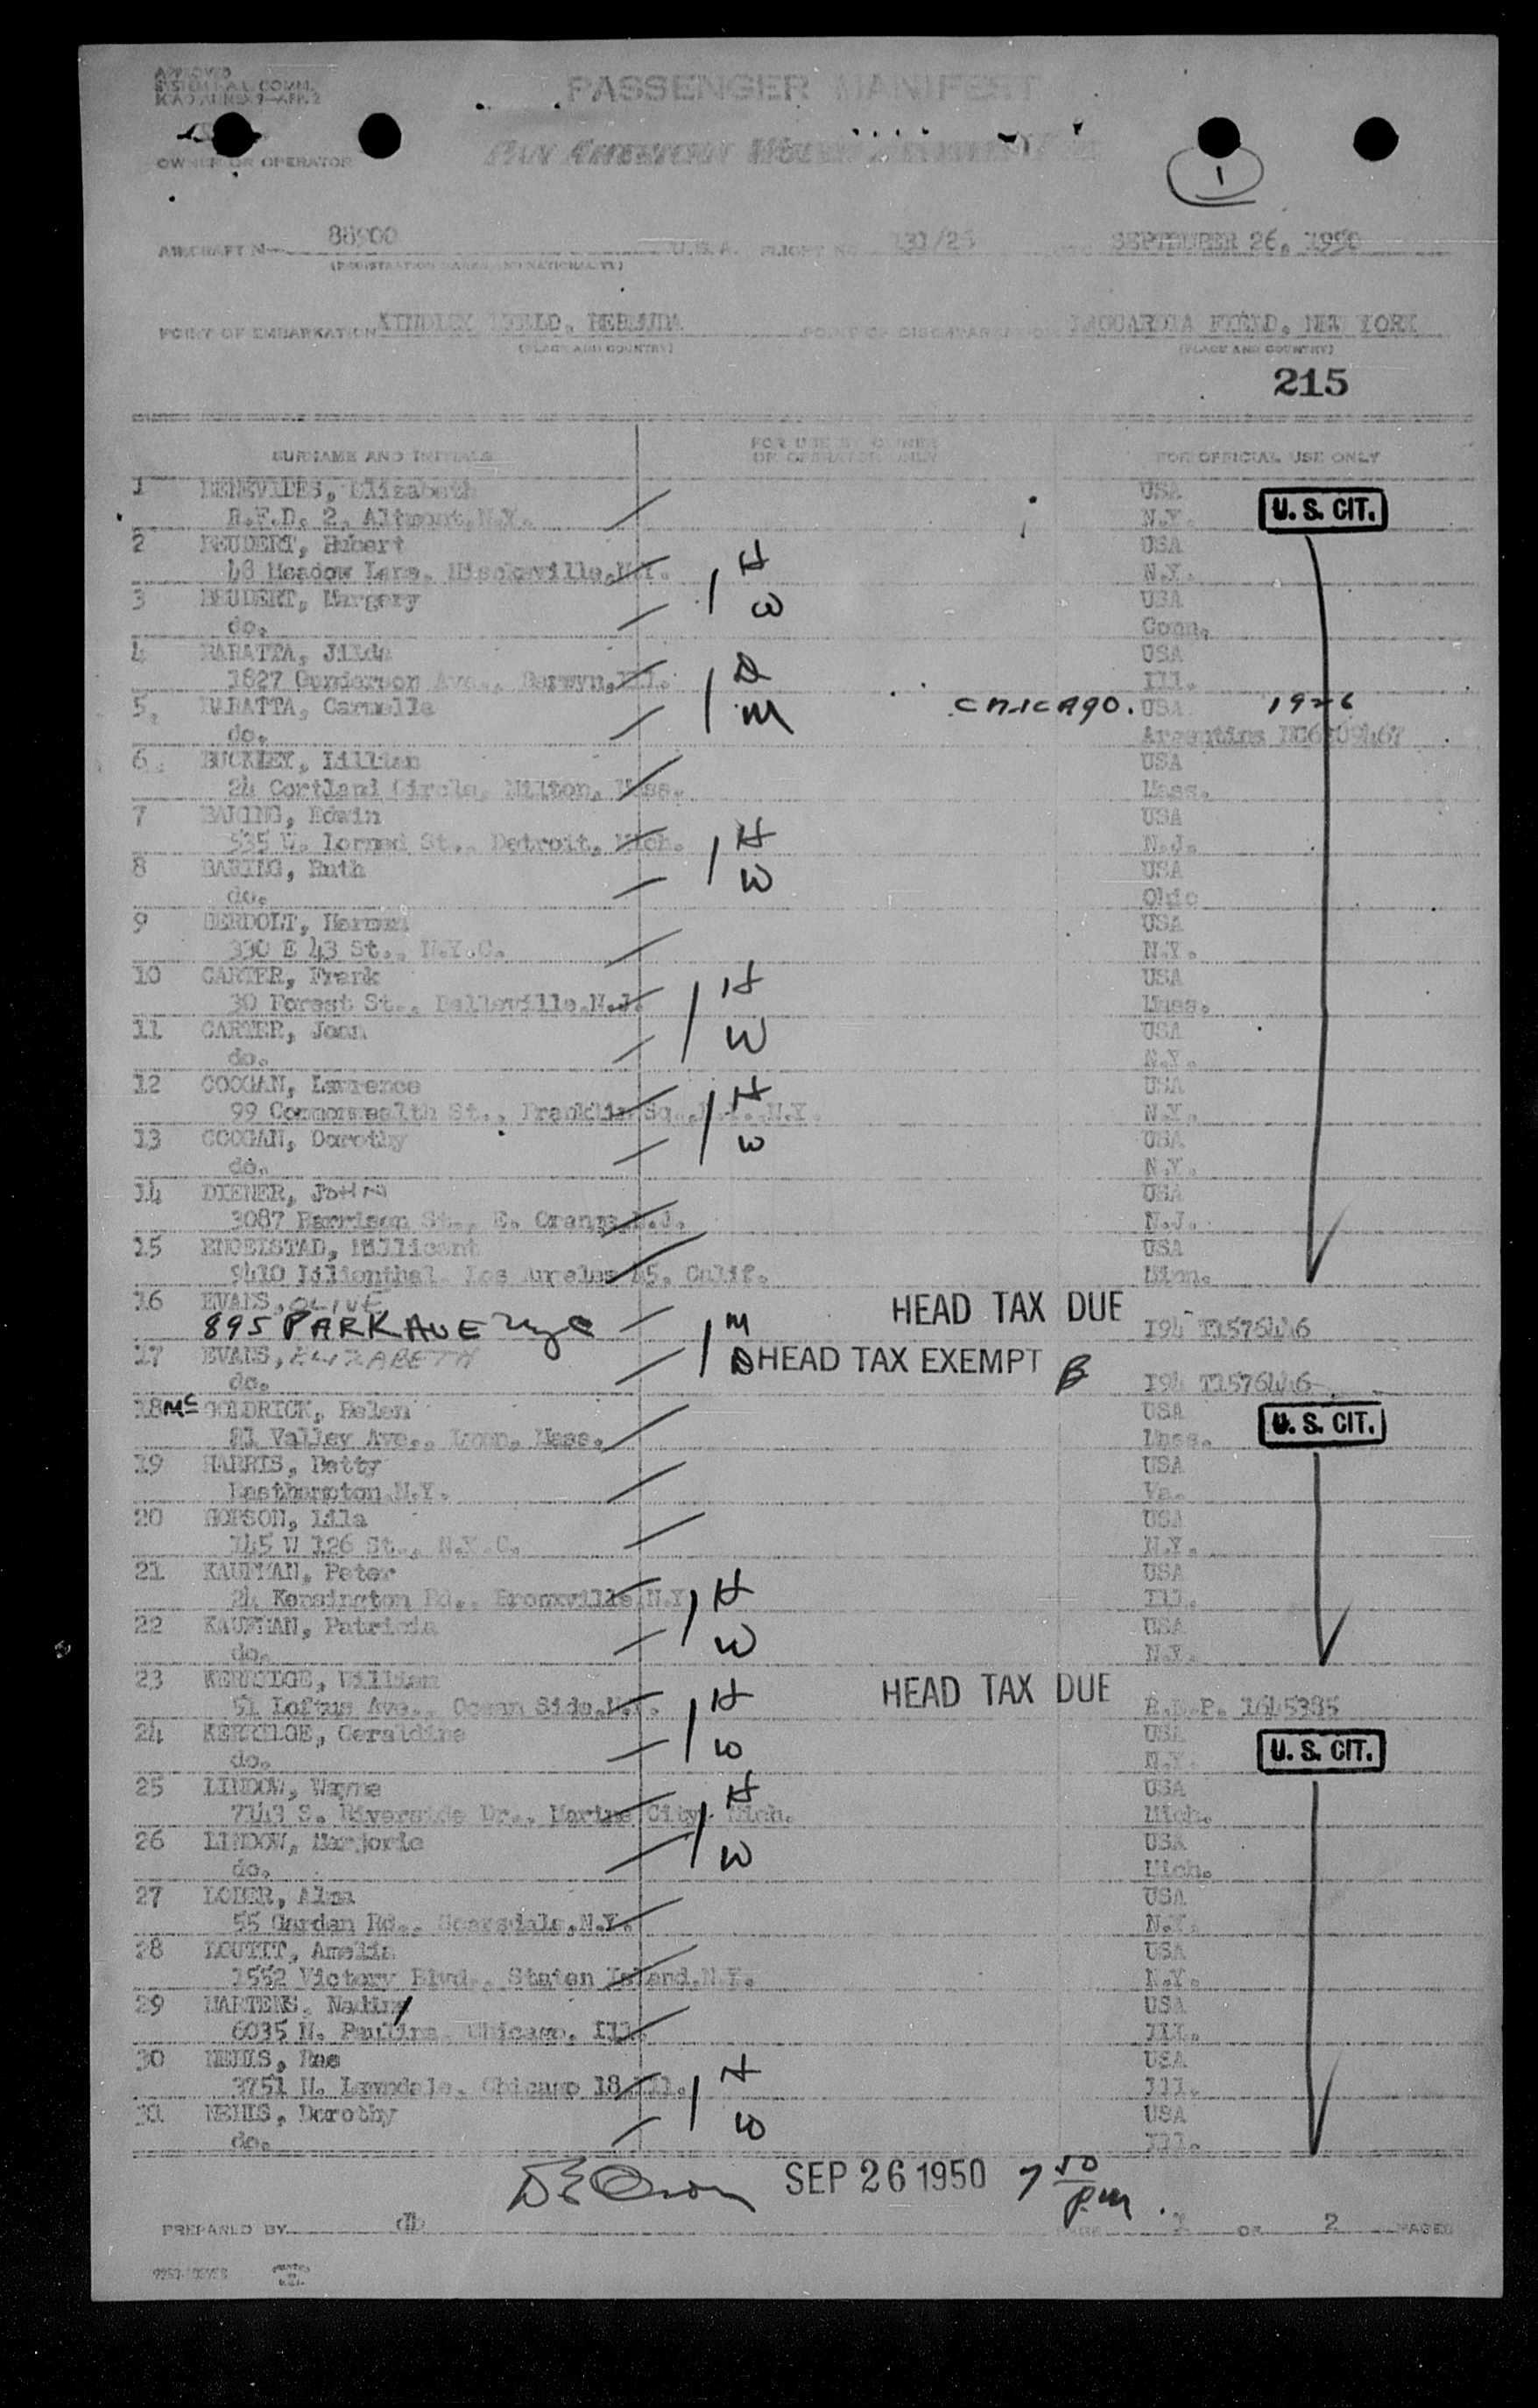 APPROVED
PASSENGER MANIFEST
OWNER OR OPERATOR
1
AIRCRAFT N— 88900 U.S.A. FLIGHT NO. 131/25 SEPTEMBER 26, 1950
POINT OF EMBARKATION KINDLEY FIELD, BERMUDA POINT OF DISEMBARKATION LAGUARDIA FIELD, NEW YORK
(PLACE AND COUNTRY) (PLACE AND COUNTRY)
215
SURNAME AND INITIALS FOR USE BY OWNER OR OPERATOR ONLY FOR OFFICIAL USE ONLY
1 BENEVIDES, Elizabeth USA
R.F.D. 2, Altmont, N.Y. N.Y. U.S. CIT.
2 BEUDERT, Hubert USA
48 Meadow Lane, Hicksville, N.Y. H N.Y.
3 BEUDERT, Margery W USA
do. Conn.
4 BARATTA, Jilda USA
1827 Gunderson Ave., Berwyn, Ill. D Ill.
5. BARATTA, Carmella M CHICAGO. USA 1926
do. Argentina
6 BUCKLEY, Lillian USA
24 Cortland Circle, Milton, Mass. Mass.
7 BARING, Edwin USA
535 W. Lorned St., Detroit, Mich. H N.J.
8 BARING, Ruth W USA
do. Ohio
9 BERDOLT, Herman USA
330 E 43 St., N.Y.C. N.Y.
10 CARTER, Frank H USA
30 Forest St., Belleville, N.J. Mass.
11 CARTER, Joan W USA
do. N.Y.
12 COOGAN, Lawrence H USA
99 Commonwealth St., Franklin Sq., L.I., N.Y. N.Y.
13 COOGAN, Dorothy W USA
do. N.Y.
14 DIENER, USA
3087 Harrison St., E. Orange, N.J. N.J.
15 ENGELSTAD, Millicent USA
9410 Lilienthal, Los Angeles 45, Calif. Minn.
16 EVANS, OLIVE HEAD TAX DUE
895 PARK AVE NYC M I94 T1576446
17 EVANS, ELIZABETH D HEAD TAX EXEMPT
do. I94 T1576446
18 Mc GOLDRICK, Helen USA U.S. CIT.
81 Valley Ave., Lynn, Mass. Mass.
19 HARRIS, Betty USA
Easthampton, N.Y. Va.
20 HOPSON, Lila USA
145 W 126 St., N.Y.C. N.Y.
21 KAUFMAN, Peter H USA
24 Kensington Rd., Bronxville, N.Y. Ill.
22 KAUFMAN, Patricia W USA
do. N.Y.
23 KERRIDGE, William HEAD TAX DUE
51 Loftus Ave., Ocean Side, N.Y. H 1645385
24 KERRIDGE, Geraldine W USA U.S. CIT.
do. N.Y.
25 LINDOW, Wayne H USA
7143 S. Riverside Dr., Marine City, Mich. Mich.
26 LINDOW, Marjorie W USA
do. Mich.
27 LOBER, Alma USA
55 Garden Rd., Scarsdale, N.Y. N.Y.
28 LOUTIT, Amelia USA
1552 Victory Blvd., Staten Island, N.Y. N.Y.
29 MARTENS, Nadine USA
6035 N. Paulina, Chicago, Ill. Ill.
30 NEHLS, Rae H USA
3751 N. Lawndale, Chicago 18, Ill. Ill.
31 NEHLS, Dorothy W USA
do. Ill.
SEP 26 1950 7 50 P.M.
PREPARED BY PAGE 1 OF 2 PAGES